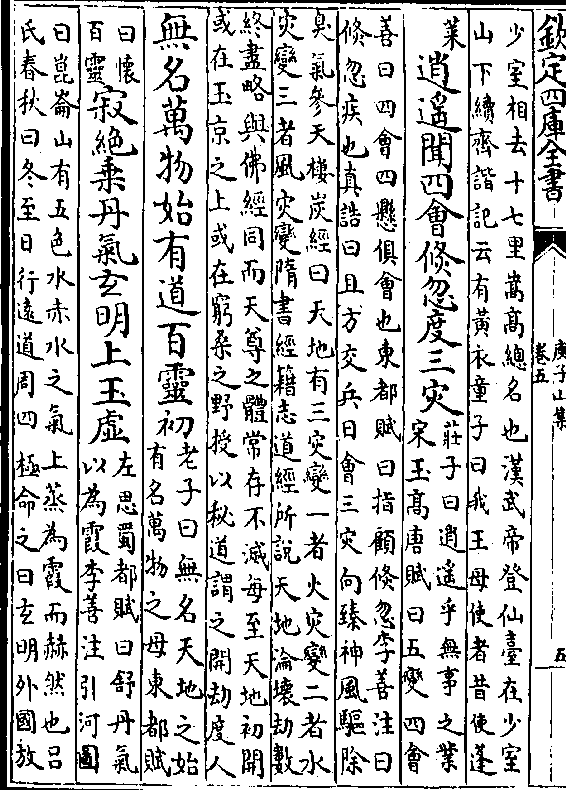 欽定四庫全書
庾子山集
卷五
五
少室相去十七里嵩髙總名也漢武帝登仙臺在少室
山下續齊諧記云有黄衣童子曰我王母使者昔使蓬
萊
逍遙聞四會倏忽度三灾
莊子曰逍遙乎無事之業
宋玉髙唐賦曰五變四會
善曰四會四懸俱會也東都賦曰指顧倏忽李善注曰
倏忽疾也真誥曰且方交兵日會三灾向臻神風驅除
臭氣參天樓炭經曰天地有三灾變一者火灾變二者水
灾變三者風灾變隋書經籍志道經所說天地淪壞劫數
終盡略與佛經同而天尊之體常存不滅每至天地初開
或在玉京之上或在窮桑之野授以秘道謂之開劫度人
無名萬物始有道百靈初
老子曰無名天地之始
有名萬物之母東都賦
曰懐
百靈
寂絶乗丹氣玄明上玉虛
左思蜀都賦曰舒丹氣
以為霞李善注引河圖
曰崑崙山有五色水赤水之氣上蒸為霞而赫然也吕
氏春秋曰冬至日行逺道周四極命之曰玄明外國放